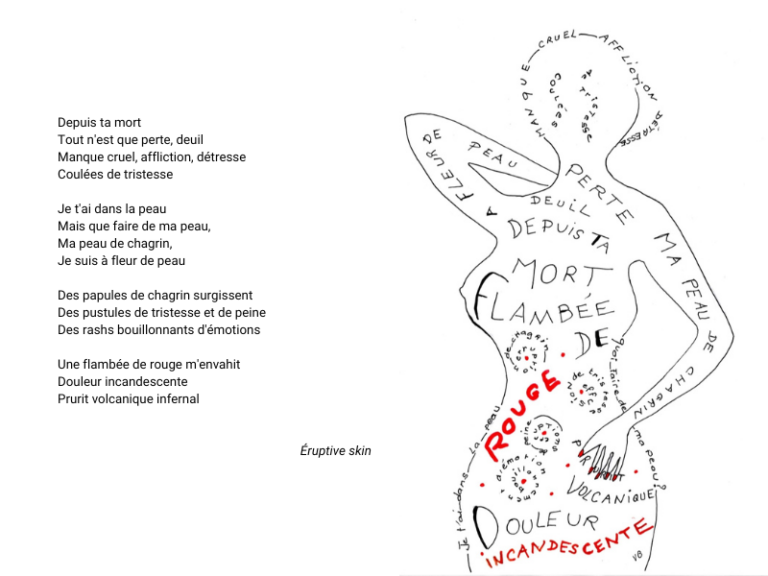 Depuis ta mort
Tout n'est que perte, deuil
Manque cruel, affliction, détresse
Coulées de tristesse
Je t'ai dans la peau
Mais que faire de ma peau,
Ma peau de chagrin,
Je suis à fleur de peau
Des papules de chagrin surgissent
Des pustules de tristesse et de peine
Des rashs bouillonnants d'émotions
Une flambée de rouge m'envahit
Douleur incandescente
Prurit volcanique infernal
Éruptive skin
MANQUE CRUEL AFFLICTION DÉTRESSE
COULÉES
de tristesse
A FLEUR DE PEAU
PERTE
DEUIL
DEPUIS TA
MORT
FLAMBÉE
DE
ROUGE
MA PEAU DE CHAGRIN
de chagrin
de tristesse
quoi faire de ma peau?
Je t'ai dans la peau
d'émotion
PRURIT
VOLCANIQUE
DOULEUR
INCANDESCENTE